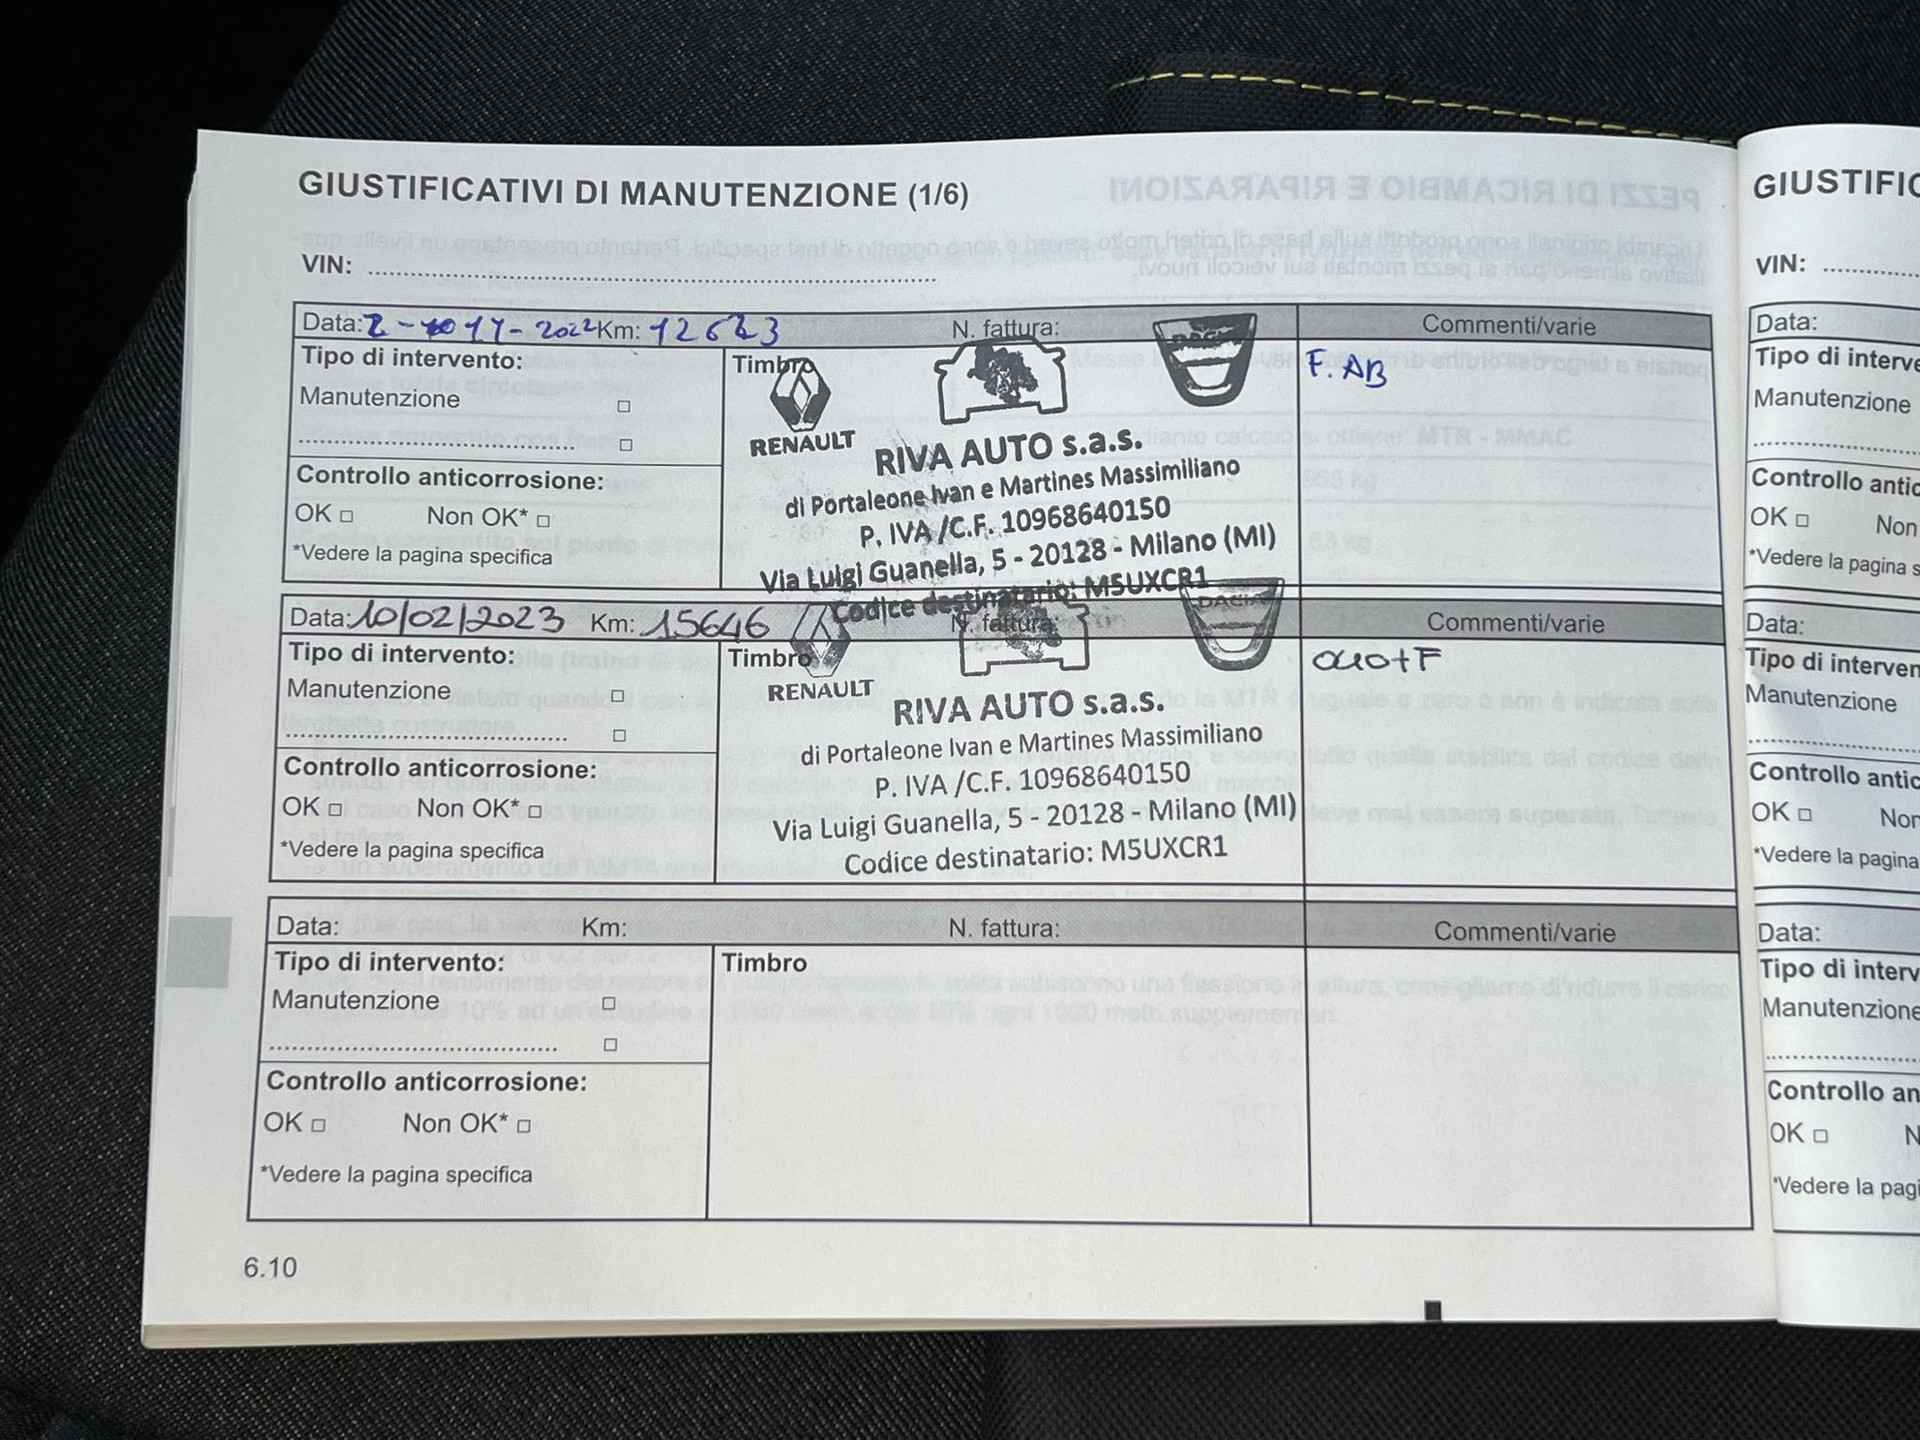 GIUSTIFICATIVI DI MANUTENZIONE (1/6)
VIN:
Data: 2 - 11 - 2022 Km: N. fattura: Commenti/varie
Tipo di intervento:
Timbro
F. AB
Manutenzione □
□
Controllo anticorrosione:
OK □ Non OK* □
*Vedere la pagina specifica
RENAULT
DACIA
RIVA AUTO s.a.s.
di Portaleone Ivan e Martines Massimiliano
P. IVA /C.F. 10968640150
Via Luigi Guanella, 5 - 20128 - Milano (MI)
Codice destinatario: M5UXCR1
Data: 10/02/2023 Km: 15646 N. fattura: Commenti/varie
Tipo di intervento:
Timbro
Manutenzione □
□
Controllo anticorrosione:
OK □ Non OK* □
*Vedere la pagina specifica
RENAULT
DACIA
RIVA AUTO s.a.s.
di Portaleone Ivan e Martines Massimiliano
P. IVA /C.F. 10968640150
Via Luigi Guanella, 5 - 20128 - Milano (MI)
Codice destinatario: M5UXCR1
Data: Km: N. fattura: Commenti/varie
Tipo di intervento:
Timbro
Manutenzione □
□
Controllo anticorrosione:
OK □ Non OK* □
*Vedere la pagina specifica
6.10
GIUSTIFIC
VIN:
Data:
Tipo di interve
Manutenzione
Controllo antic
OK □ Non
*Vedere la pagina s
Data:
Tipo di interven
Manutenzione
Controllo antic
OK □ Non
*Vedere la pagina
Data:
Tipo di interv
Manutenzione
Controllo an
OK □ N
*Vedere la pagi